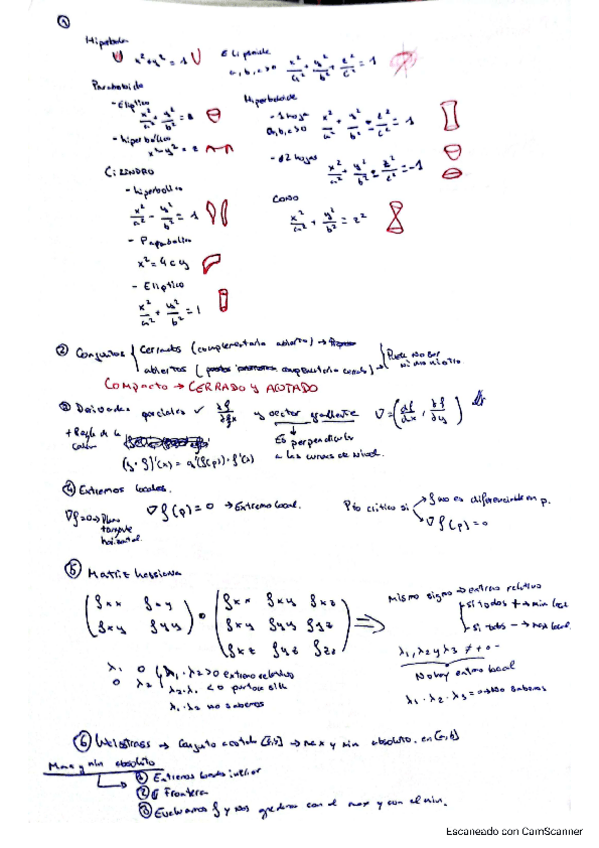 ①
Hipérbola
x² + y² = 1
Elipsoide
a, b, c > 0 x²/a² + y²/b² + z²/c² = 1
Paraboloide
- Elíptico
x²/a² + y²/b² = z
- hiperbólico
x² - y² = z
Hiperboloide
- 1 hoja
a, b, c > 0 x²/a² + y²/b² - z²/c² = 1
- d2 hojas
x²/a² + y²/b² - z²/c² = -1
CILINDRO
- hiperbólico
x²/a² - y²/b² = 1
- Parabólico
x² = 4cy
- Elíptico
x²/a² + y²/b² = 1
Cono
x²/a² + y²/b² = z²
② Conjuntos
Cerrados (complementario abierto) →
abiertos (complementario cerrado) →
Puede no ser
ni uno ni otro
COMPACTO → CERRADO Y ACOTADO
③ Derivadas parciales ✓ ∂f/∂x y vector gradiente ∇ = (∂f/∂x, ∂f/∂y)
+ Regla de la
cadena
(g · f)'(x) = g'(f(p)) · f'(x)
Es perpendicular
a las curvas de nivel.
④ Extremos locales.
∇f=0 → Plano
tangente
horizontal.
∇f(p) = 0 → Extremo local.
Pto crítico si
f no es diferenciable en p.
∇f(p) = 0
⑤ Matriz hessiana
fxx fxy
fxy fyy
o
fxx fxy fxz
fxy fyy fyz
fxz fyz fzz
⇒
Mismo signo → extremo relativo
si todos + → min local
si todos - → max local.
λ1, λ2 y λ3 ≠ + o -
No hay extremo local
λ1 · λ2 · λ3 = 0 → No sabemos
λ1 0
0 λ2
λ1 · λ2 > 0 extremo relativo
λ2 · λ1 < 0 punto silla
λ1 · λ2 no sabemos
⑥ Weistrass → Conjunto acotado [a,b] → max y min absoluto. en [a,b]
Max y min absoluto
① Extremos interior
② Frontera
③ Evaluamos f y nos quedamos con el max y con el min.
Escaneado con CamScanner